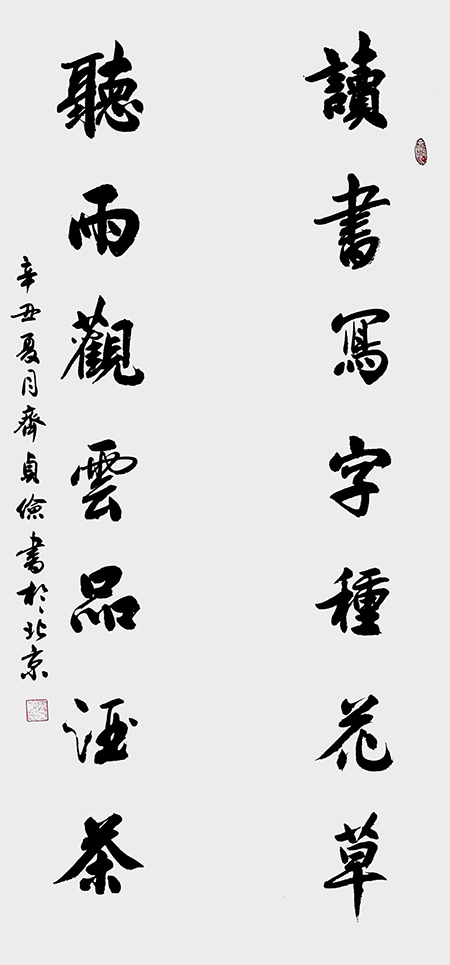 讀書寫字種花草
聽雨觀雲品酒茶
辛丑夏月齊貞儉書於北京